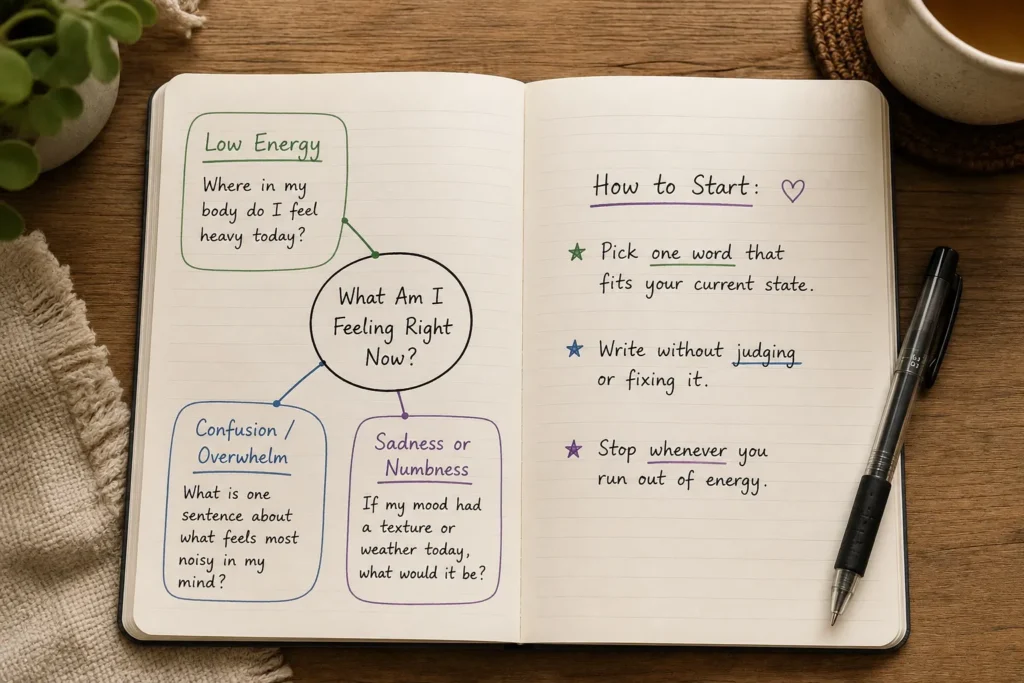 Low Energy
Where in my
body do I feel
heavy today?
What Am I
Feeling Right
Now?
Confusion /
Overwhelm
What is one
sentence about
what feels most
noisy in my
mind?
Sadness or
Numbness
If my mood had
a texture or
weather today,
what would it be?
How to Start:
Pick one word that
fits your current state.
Write without judging
or fixing it.
Stop whenever you
run out of energy.